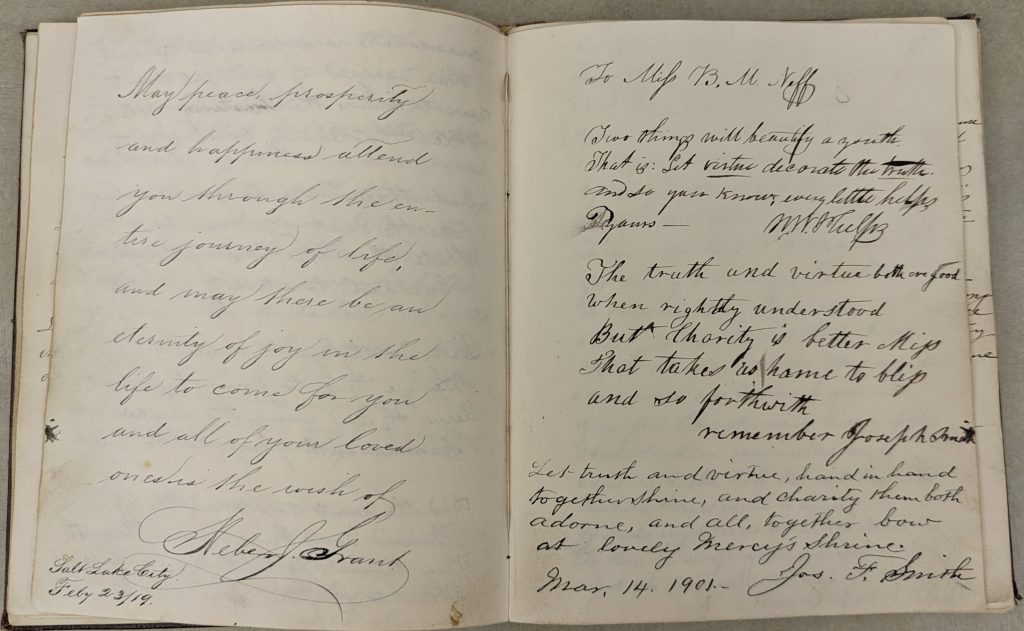 May peace, prosperity
and happiness attend
you through the en-
tire journey of life,
and may there be an
eternity of joy in the
life to come for you
and all of your loved
ones is the wish of
Heber J. Grant
Salt Lake City.
Feby 23/19.
To Miss B. M. Neff
Two things will beautify a youth
That is: Let virtue decorate the truth.
and so you know; every little helps
yours — W. W. Phelps
The truth and virtue both are good
When rightly understood
But Charity is better Miss
That takes us home to bliss
and so forthwith
remember Joseph Smith
Let truth and virtue, hand in hand
together shine, and charity them both
adorne, and all, together bow
at lovely Mercy's Shrine.
Mar. 14. 1901.- Jos. F. Smith